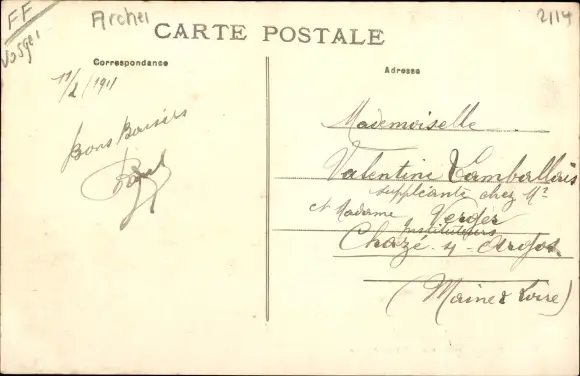 FF
Vosges
Archel
2114
CARTE POSTALE
Correspondance
Adresse
11/2/1911
Bons Baisers
Mademoiselle
Valentine Lamballais
suppléante chez Mr
et Madame Verger
Instituteurs
Chazé-s-Argos
(Maine & Loire)